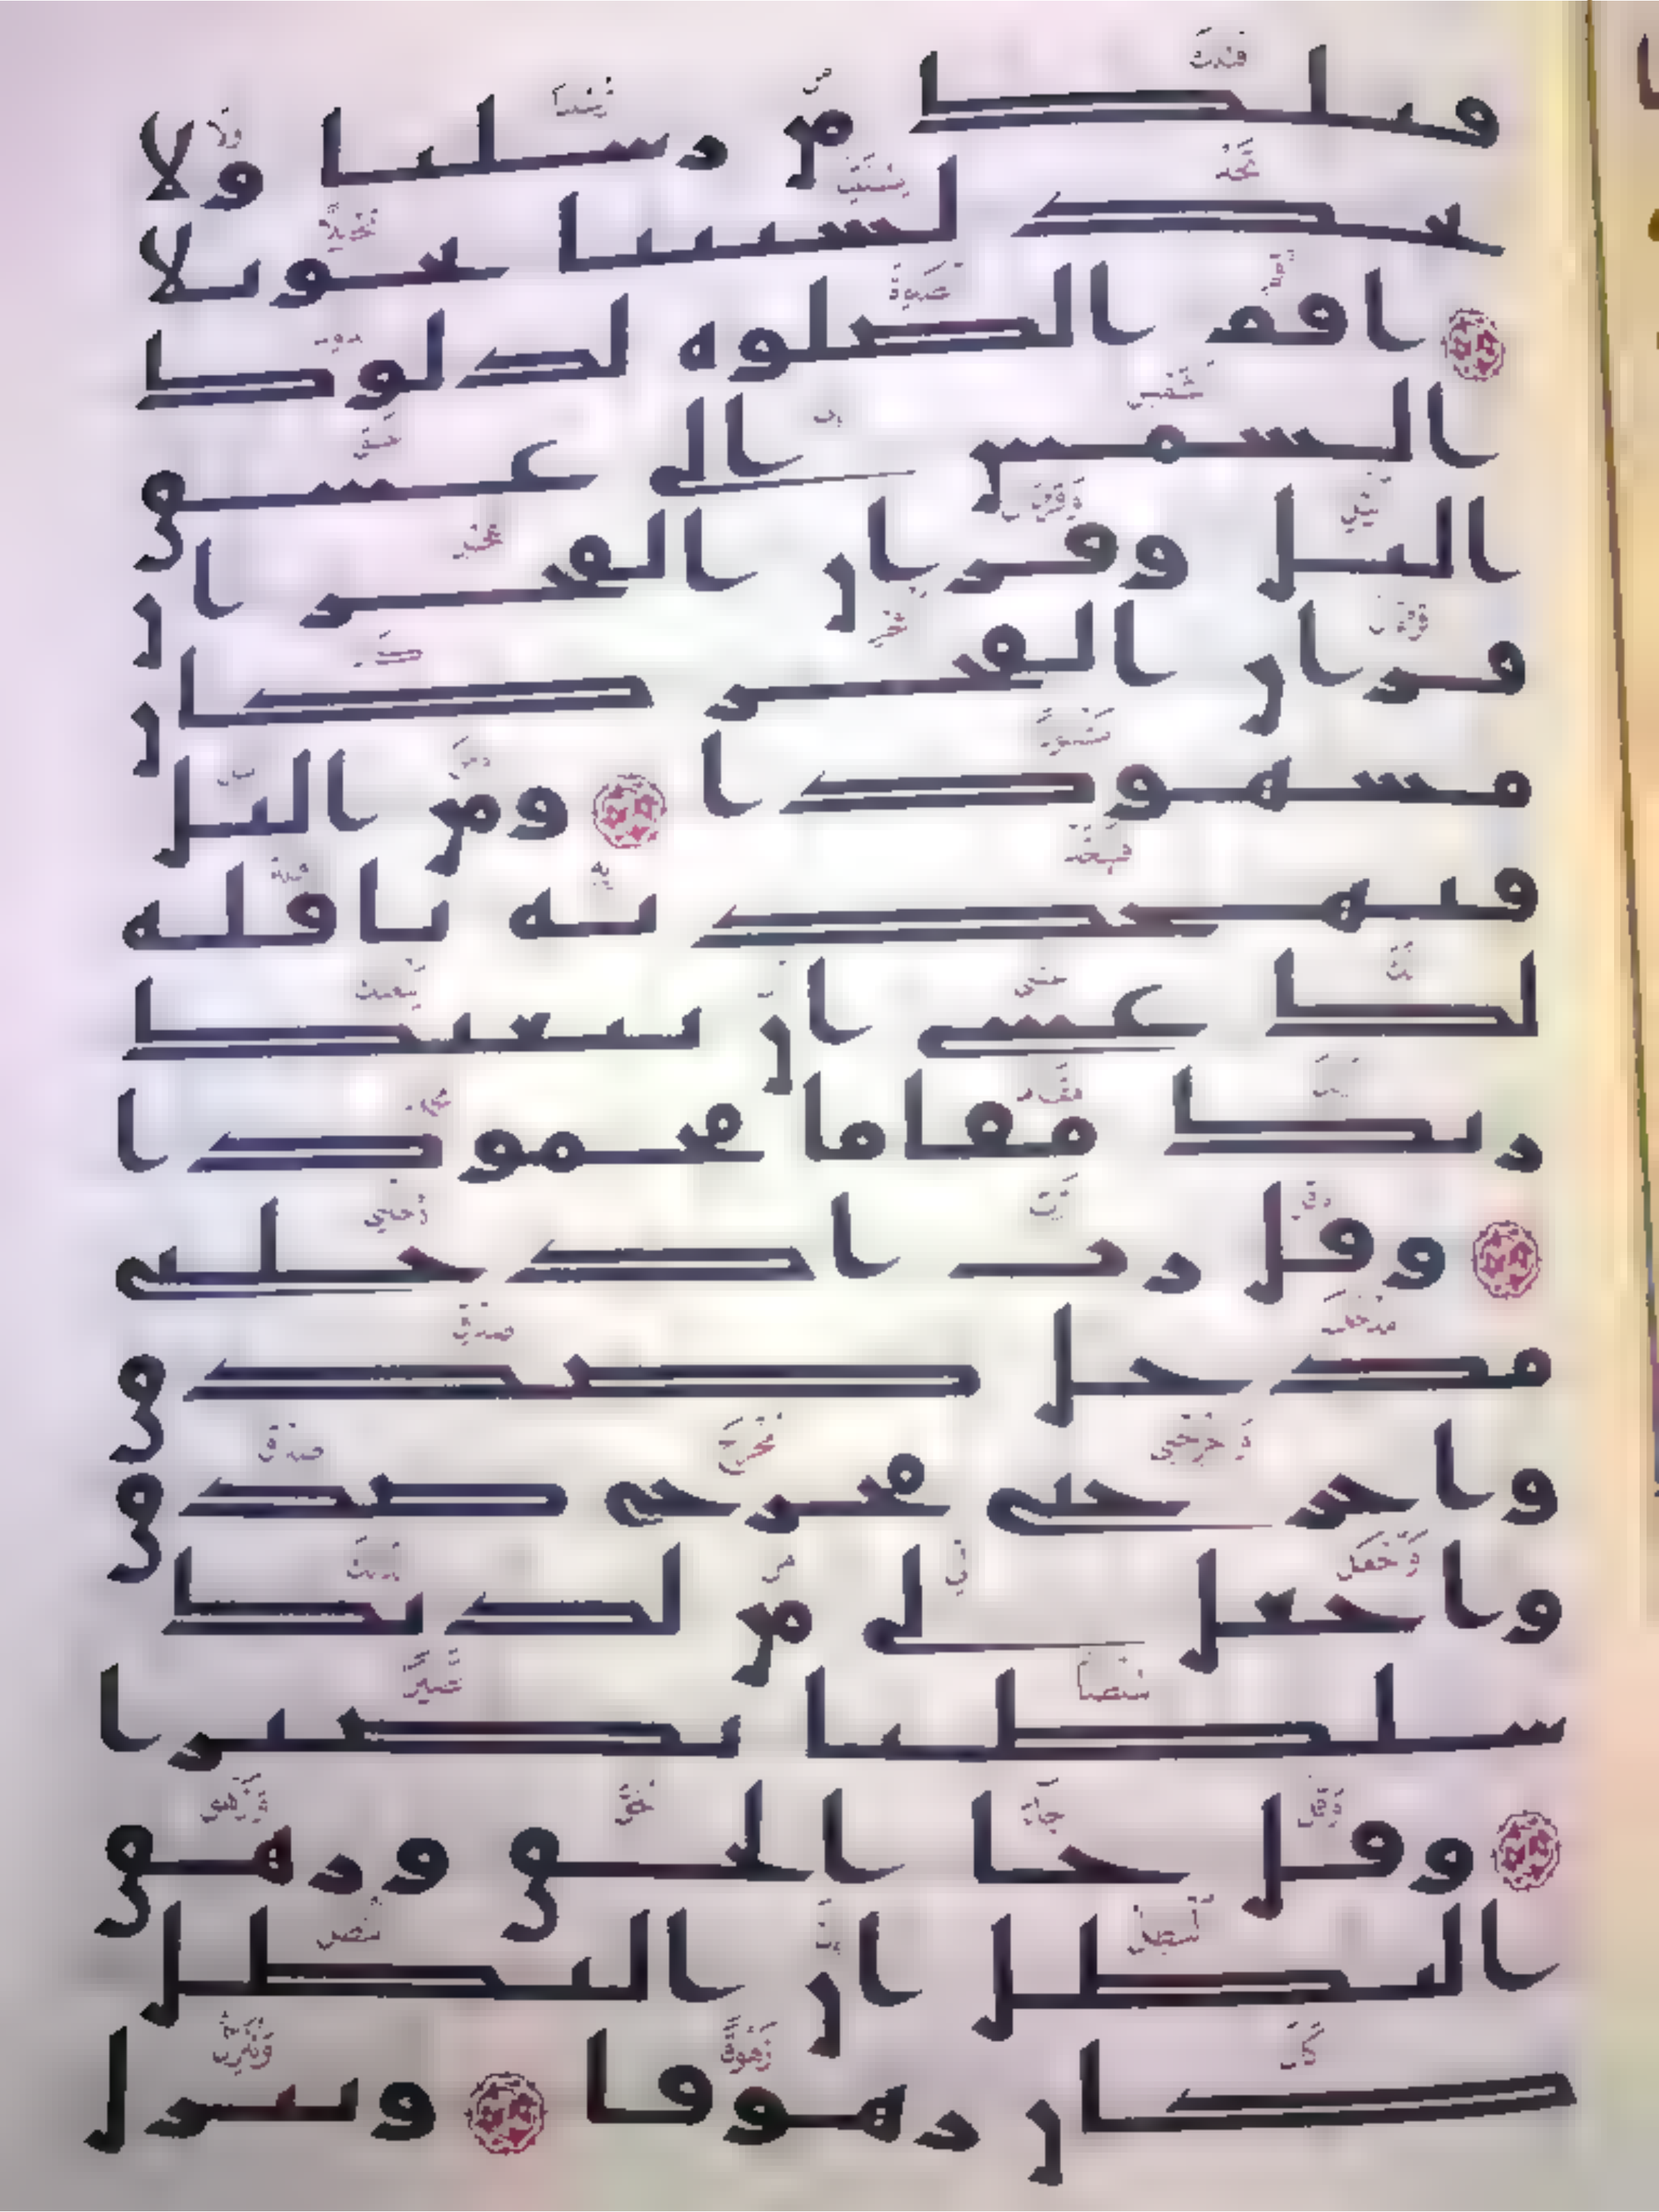 قبلك من رسلنا ولا
تجد لسنتنا تحويلا
اقم الصلوه لدلوك
الشمس الى غسق
اليل وقران الفجر ان
قران الفجر كان
مشهودا ومن اليل
فتهجد به نافله
لك عسى ان يبعثك
ربك مقاما محمودا
وقل رب ادخلني
مدخل صدق
واخرجني مخرج صدق
واجعل لي من لدنك
سلطنا نصيرا
وقل جا الحق وزهق
البطل ان البطل
كان زهوقا وننزل